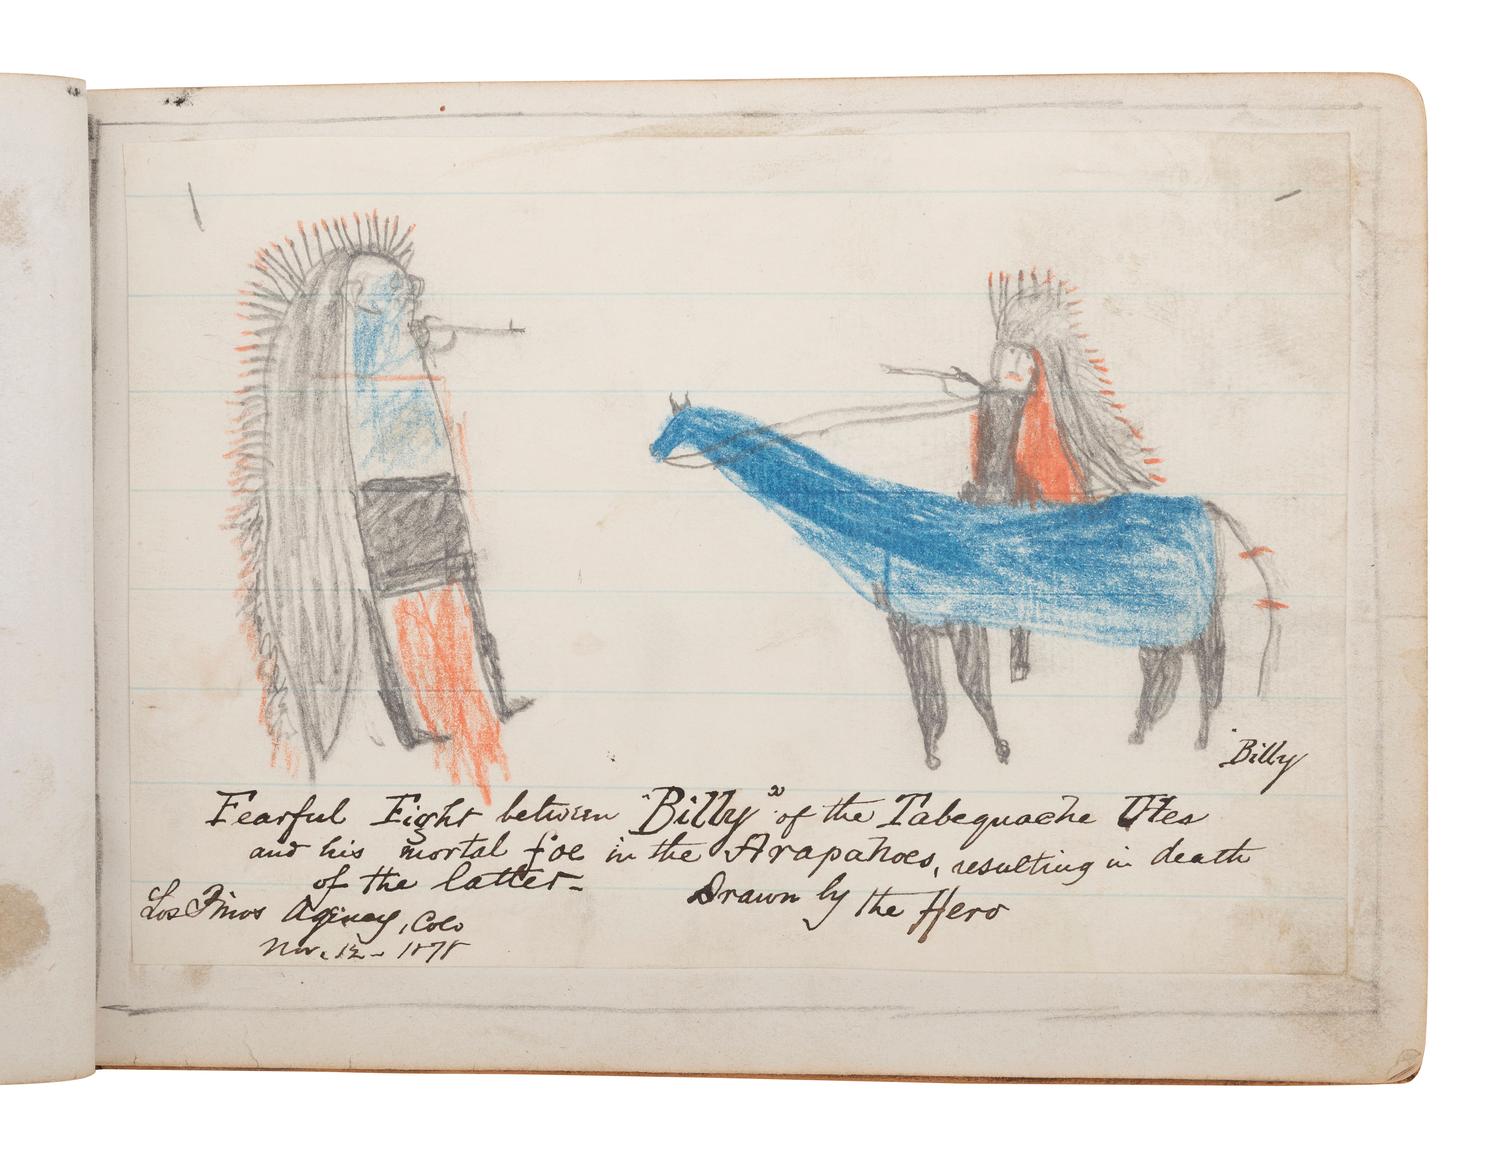 "Billy
Fearful Fight between "Billy" of the Tabequache Utes
and his mortal foe in the Arapahoes, resulting in death
of the latter-
Drawn by the Hero
Los Pinos Agency, Colo
Nov. 12 - 1878